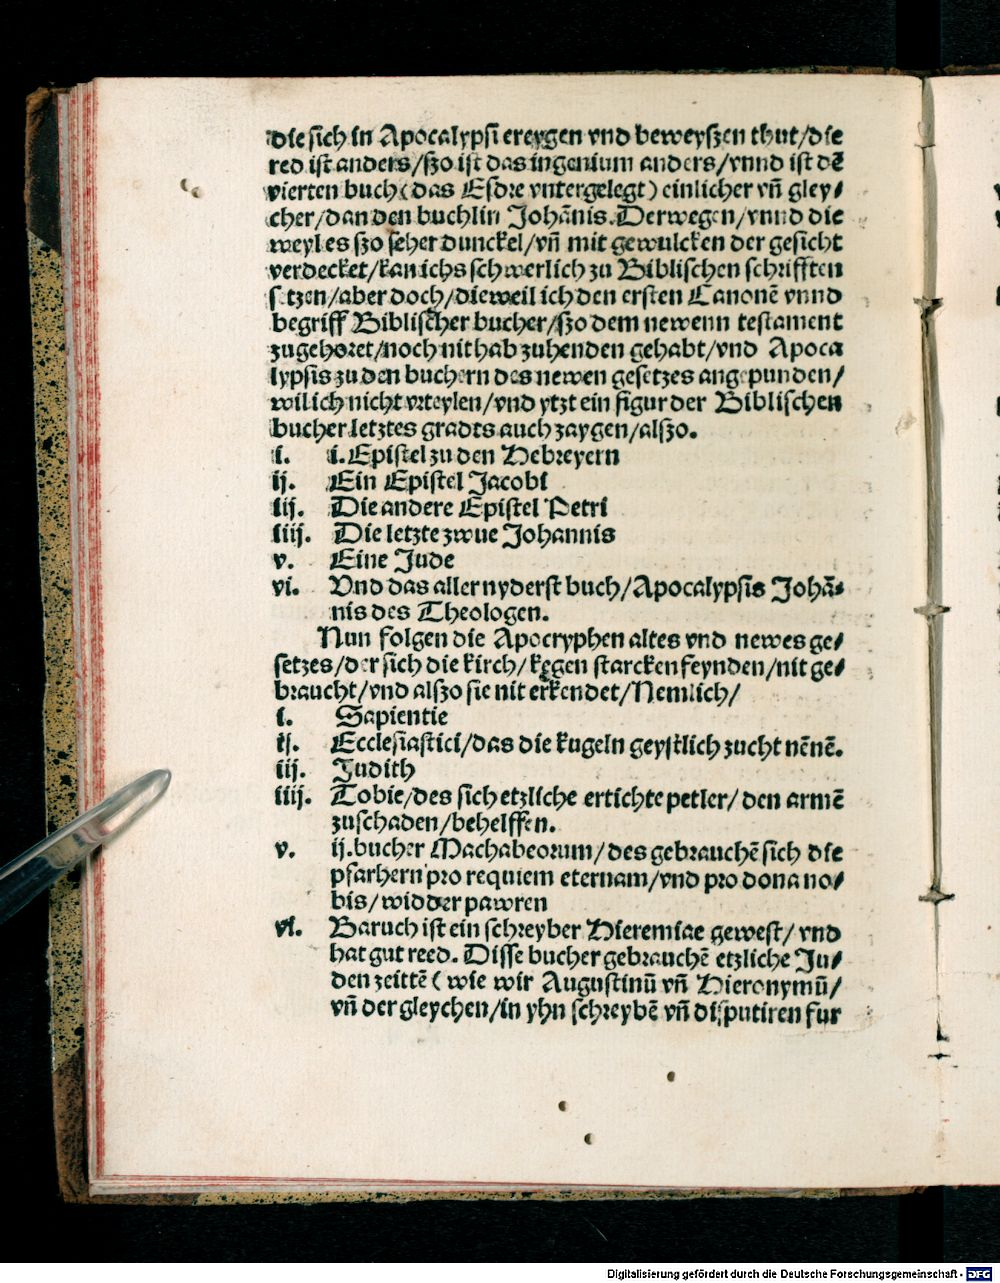 die sich in Apocalypsi ereygen vnd beweyſzen thut/die
red ist anders/ſzo ist das ingenium anders/vnnd ist dẽ
vierten buch (das Esdre vntergelegt) einlicher vñ gley⸗
cher/dan den buchlin Johãnis. Derwegen/vnnd die
weyl es ſzo ſeher dunckel/vñ mit gewulcken der geſicht
verdecket/kan ichs ſchwerlich zu Bibliſchen ſchrifften
ſetzen/aber doch/dieweil ich den ersten Canonẽ vnnd
begriff Bibliſcher bucher/ſzo dem newenn testament
zugehoret/noch nit hab zuhenden gehabt/vnd Apoca
lypſis zu den buchern des newen geſetzes angepunden/
wil ich nicht vrteylen/vnd ytzt ein figur der Bibliſchen
bucher letztes gradts auch zaygen/alſzo.
i. i. Epiſtel zu den Hebreyern
ij. Ein Epiſtel Jacobi
iij. Die andere Epiſtel Petri
iiij. Die letzte zwue Johannis
v. Eine Jude
vi. Vnd das aller nyderſt buch/Apocalypſis Johã⸗
nis des Theologen.
Nun folgen die Apocryphen altes vnd newes ge⸗
ſetzes/der ſich die kirch/kegen ſtarcken feynden/nit ge⸗
braucht/vnd alſzo ſie nit erkendet/Nemlich/
i. Sapientie
ij. Eccleſiaſtici/das die kugeln geyſtlich zucht nẽnẽ.
iij. Judith
iiij. Tobie/des ſich etzliche ertichte petler/den armẽ
zuſchaden/behelffen.
v. ij. bucher Machabeorum/des gebrauchẽ ſich die
pfarhern pro requiem eternam/vnd pro dona no⸗
bis/widder pawren
vi. Baruch ist ein ſchreyber Hieremiae gewest/vnd
hat gut reed. Diſſe bucher gebrauchẽ etzliche Ju⸗
den zeittẽ (wie wir Auguſtinũ vñ Hieronymũ/
vñ der gleychen/in yhn ſchreybẽ vñ diſputiren fur
Digitalisierung gefördert durch die Deutsche Forschungsgemeinschaft - DFG